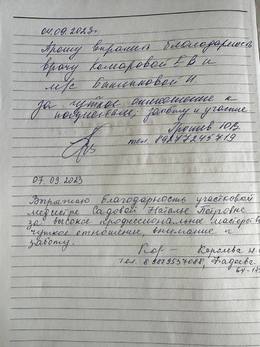 04.09.2023г
Прошу выразить благодарность
врачу Комаровой Е В и
м/с
за чуткое отношение к
заботу и участие
Ю.В.
тел.
07.09.2023
Выражаю благодарность участковой
медсестре Садовой Наталье Петровне
за высокое профессиональное мастерство,
чуткое отношение, внимание и
заботу.
Королева
тел. Фадеева